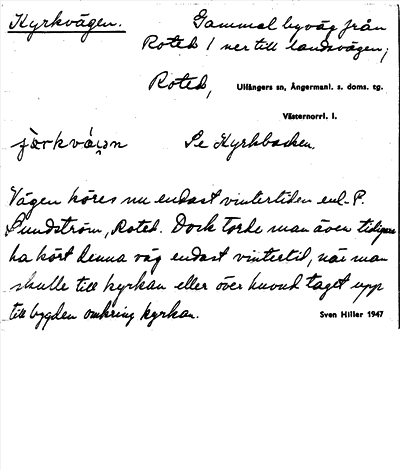 Kyrkvägen. Gammal byväg från
Roted 1 ner till landsvägen,
Roted, Ullångers sn, Ångermanl. s. doms. tg.
Västernorrl. l.
Se Kyrkbacken
Vägen köres nu endast vintertiden enl. P.
Sundström, Roted. Dock torde man även tidigare
ha kört denna väg endast vintertid, när man
skulle till kyrkan eller över huvud taget upp
till bygden omkring kyrkan.
Sven Hiller 1947